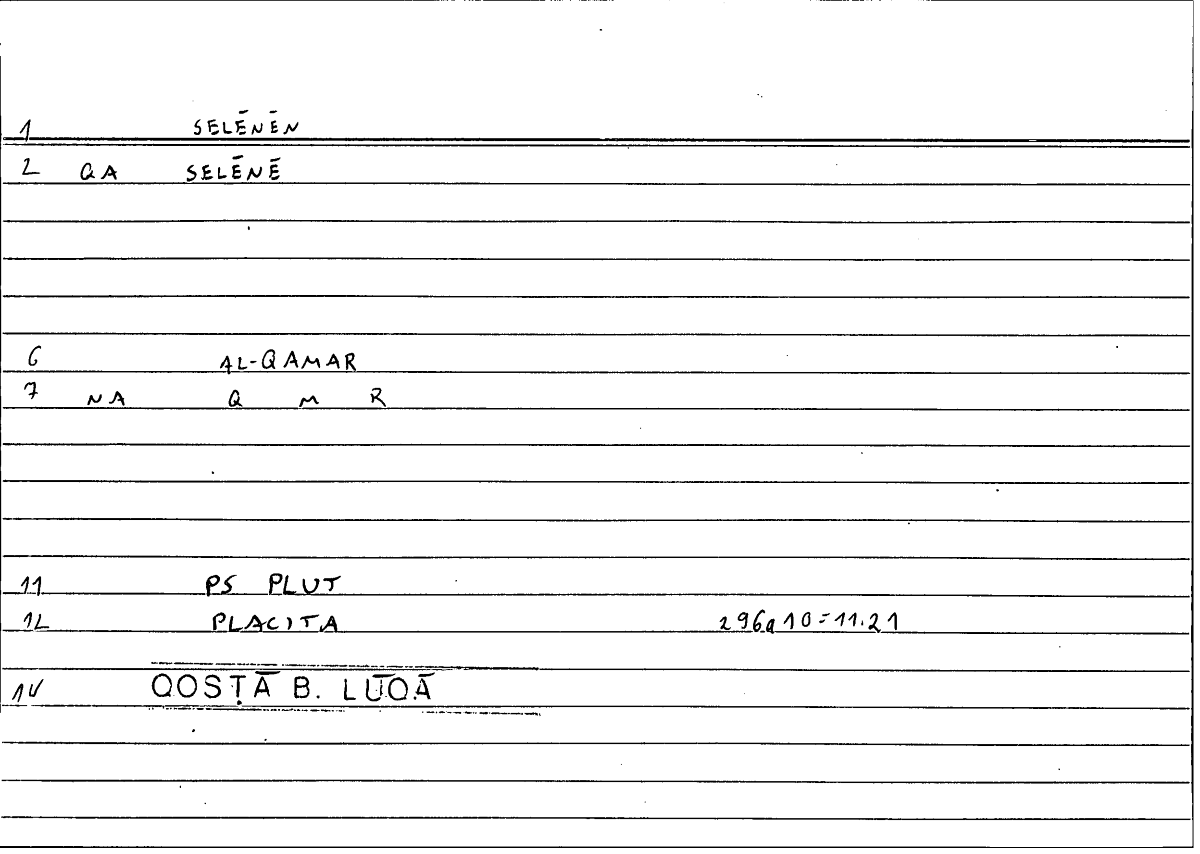 1 SELĒNĒN
2 QA SELĒNĒ
6 AL-QAMAR
7 NA Q M R
11 PS PLUT
12 PLACITA 296a10=11.21
14 QOSṬĀ B. LŪQĀ